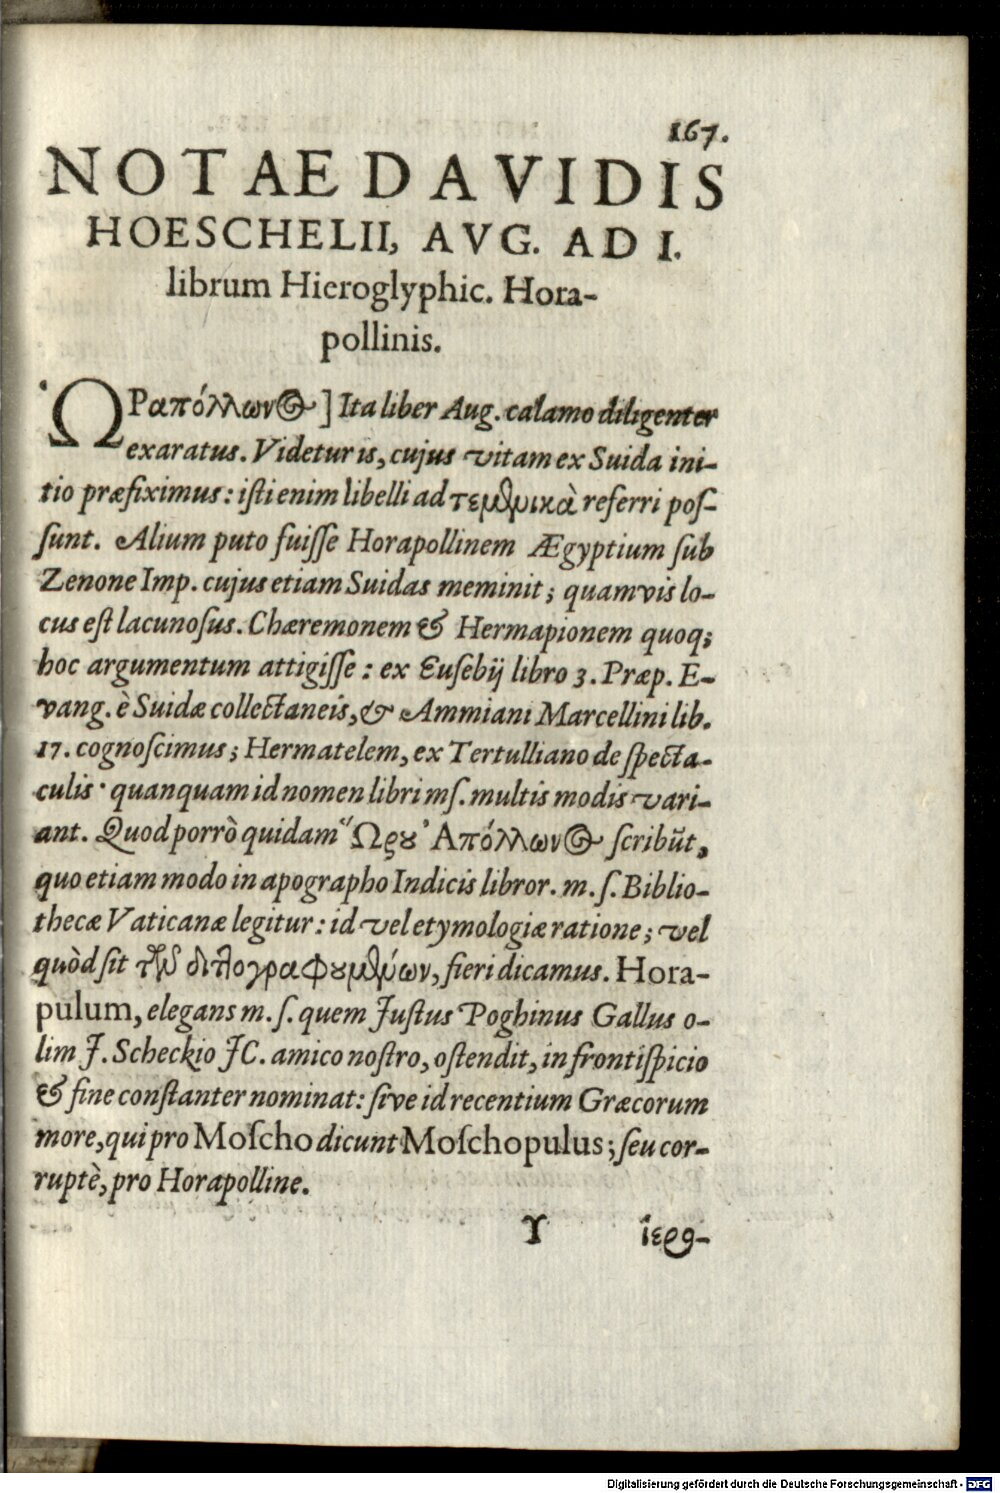 167.
NOTAE DAVIDIS
HOESCHELII, AVG. AD I.
librum Hieroglyphic. Hora-
pollinis.
ὩΡαπόλλωνος] Ita liber Aug. calamo diligenter
exaratus. Videtur is, cujus vitam ex Suida ini-
tio præfiximus: isti enim libelli ad τεμθρικὰ referri pos-
sunt. Alium puto fuisse Horapollinem Ægyptium sub
Zenone Imp. cujus etiam Suidas meminit; quamvis lo-
cus est lacunosus. Chæremonem & Hermapionem quoq;
hoc argumentum attigisse: ex Eusebij libro 3. Præp. E-
vang. è Suidæ collectaneis, & Ammiani Marcellini lib.
17. cognoscimus; Hermatelem, ex Tertulliano de specta-
culis· quanquam id nomen libri ms. multis modis vari-
ant. Quod porrò quidam Ὥρου Ἀπόλλωνος scribūt,
quo etiam modo in apographo Indicis libror. m. s. Biblio-
thecæ Vaticanæ legitur: id vel etymologiæ ratione; vel
quòd sit τῶν διπλογραφουμένων, fieri dicamus. Hora-
pulum, elegans m. s. quem Justus Poghinus Gallus o-
lim J. Scheckio JC. amico nostro, ostendit, in frontispicio
& fine constanter nominat: sive id recentium Græcorum
more, qui pro Moscho dicunt Moschopulus; seu cor-
ruptè, pro Horapolline.
Υ ἱερο-
Digitalisierung gefördert durch die Deutsche Forschungsgemeinschaft - DFG